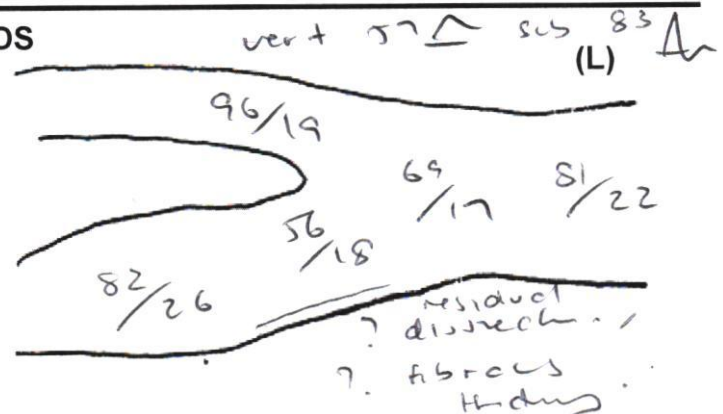 OS
vert 57 sub 83
(L)
96/19
69/17
81/22
56/18
82/26
residual
? dissectn.
? fibrous